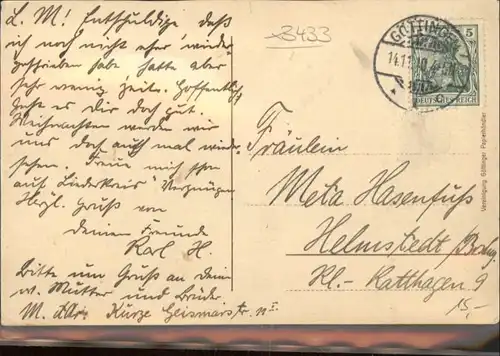 L. M! Entschuldige daß
ich noch nicht eher wieder
geschrieben habe hatte aber
sehr wenig Zeit. Hoffentlich
geht es Dir doch gut.
Weihnachten werden wir
uns doch auch mal wieder
sehen. Freue mich schon
auf Liederkreis' Vergnügen
Herzl. Gruß von
deinem Freunde
Karl H.
Bitte um Gruß an deine
w. Mutter und Brüder
M. Adr. Kurze Geismarstr.
3433
GÖTTINGEN
14.11.10
5
DEUTSCHES REICH
Fräulein
Meta Hasenfuß
Helmstedt
Kl.- Katthagen 9
15,-
Vereinigung Göttinger Papierhändler